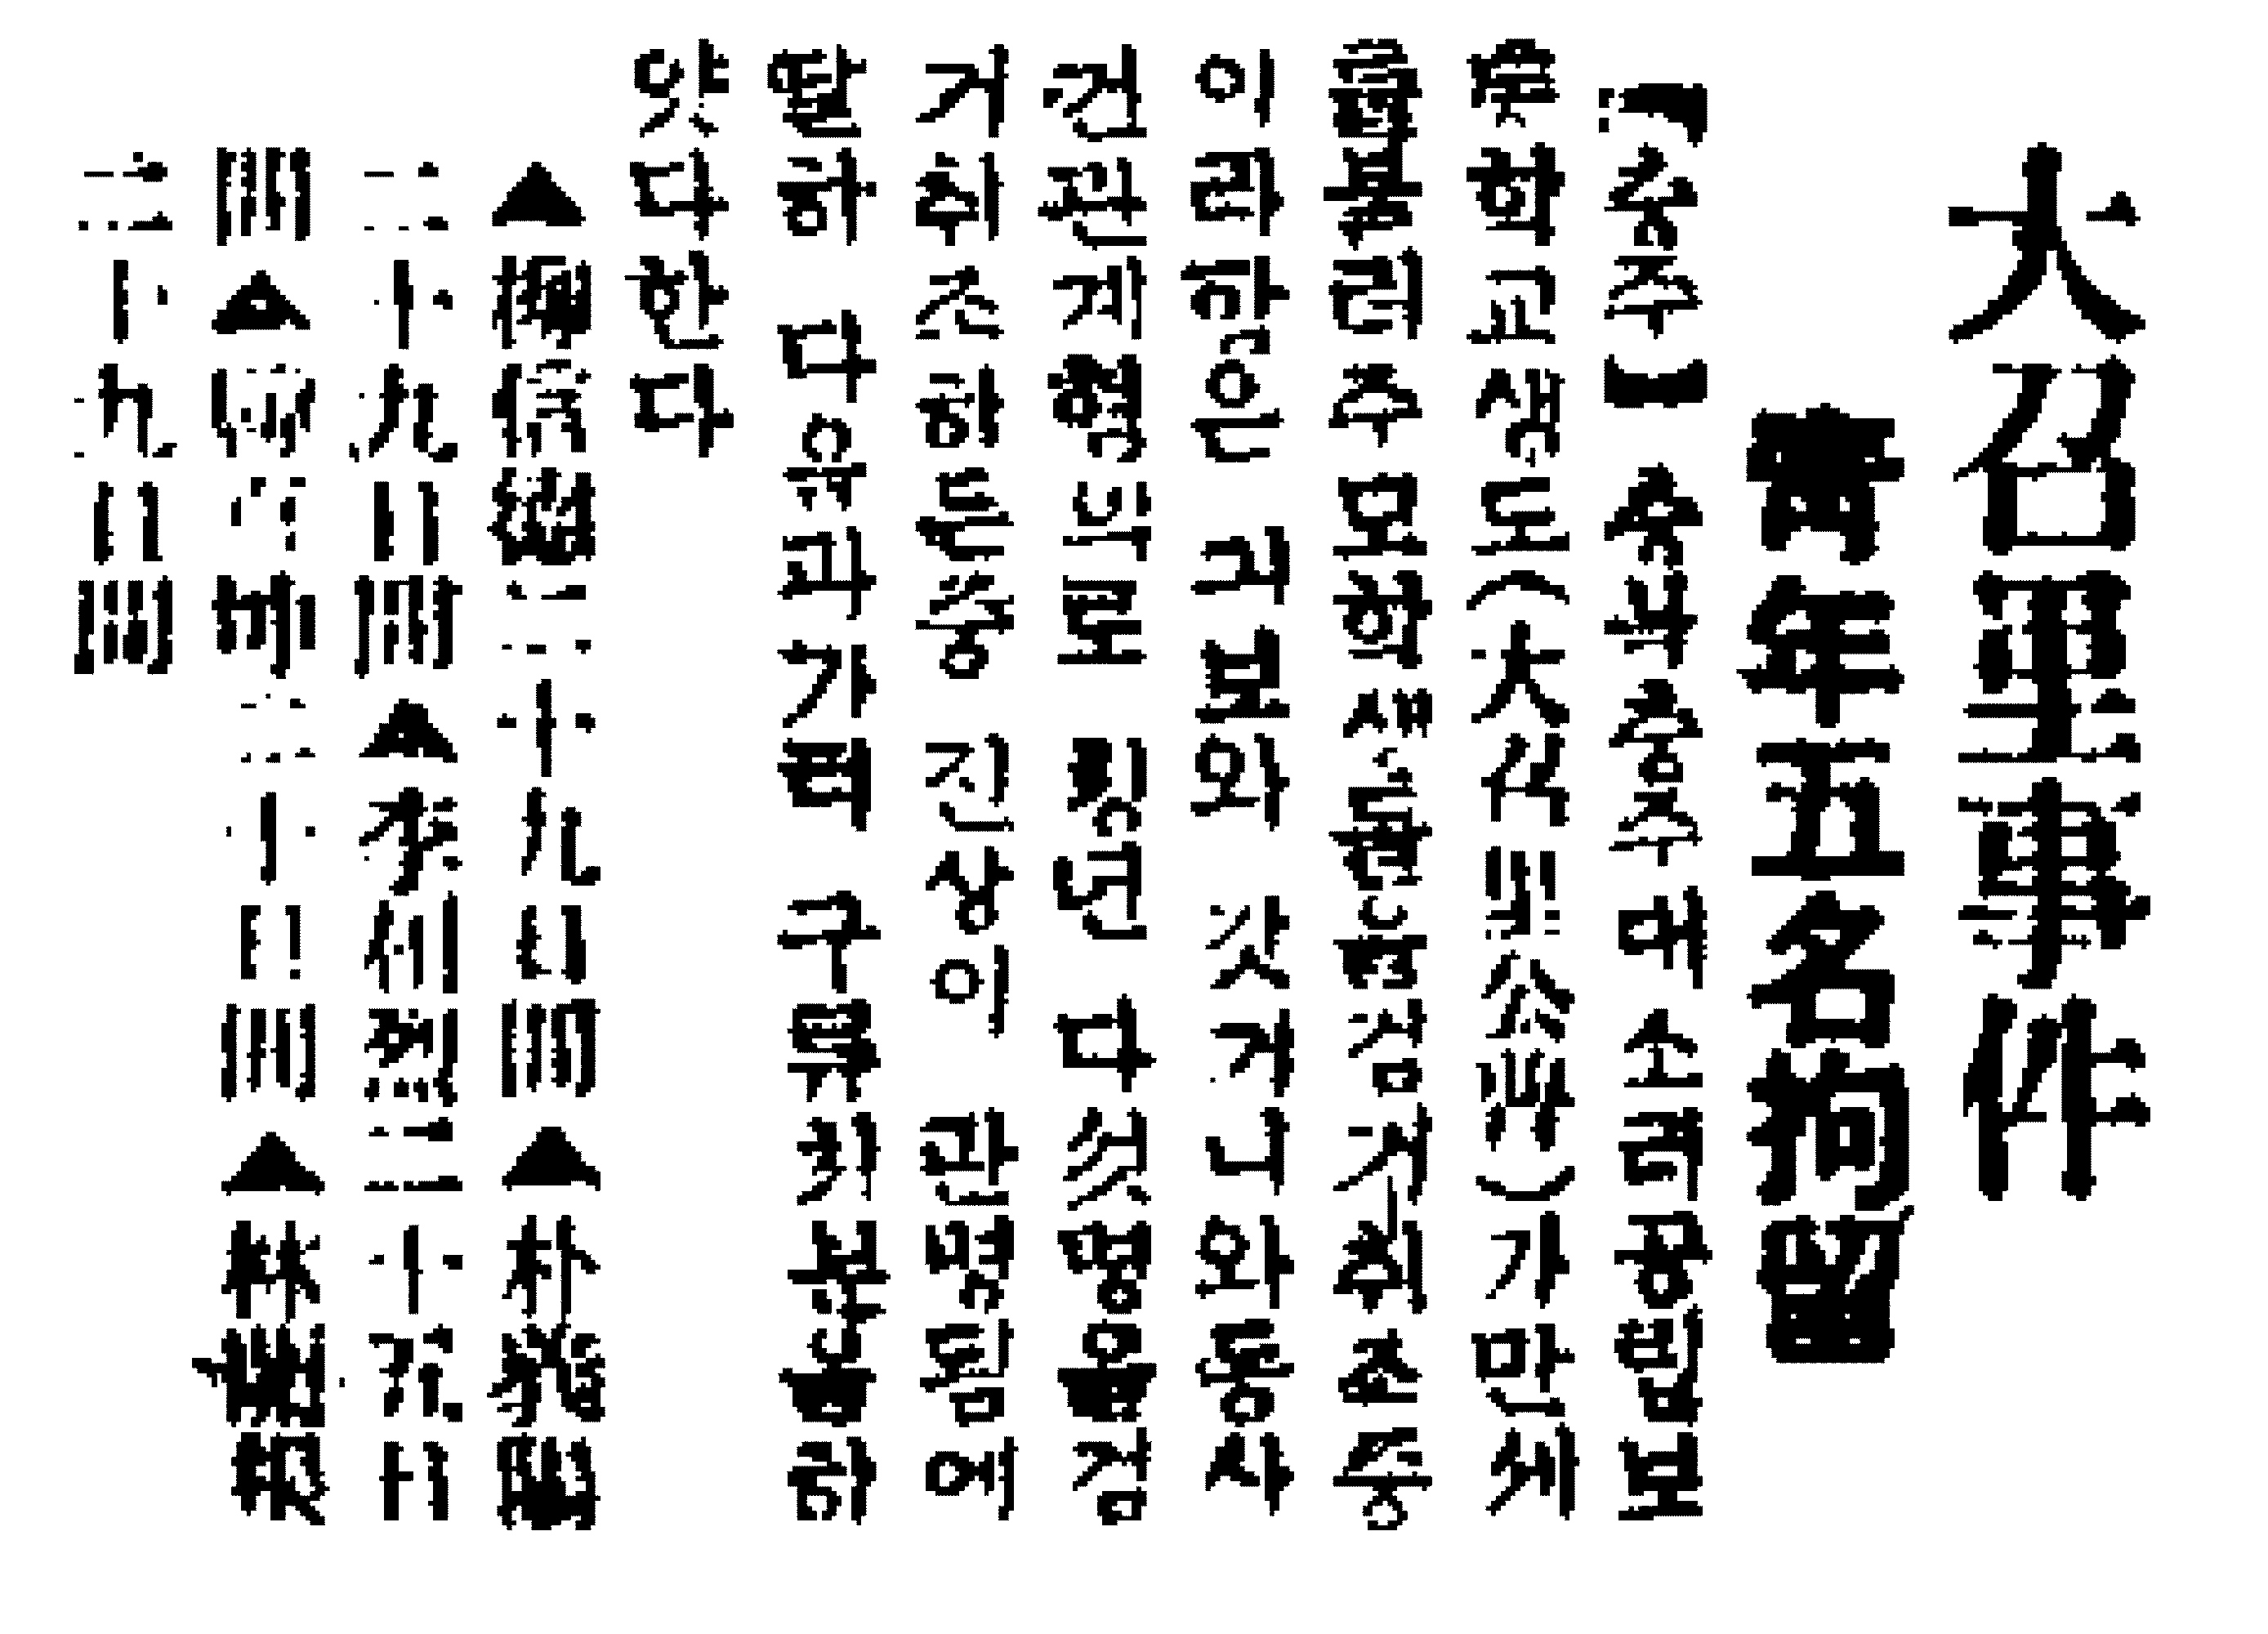 大召里事件
靑年五名拘留
【충주】충북충주대소려공립보
통학교생도(大召里公普)가만세
를불러주모학생들을검거취조중
이라함은긔보와갓거니와동사
건관계혐의로청년다섯명을검
거취조하든중진상이판명됨에
딸하다음과가티구류처분을하
얏다한다
▲信二十九日間▲朴
二十九日間▲李利烈二十九日
間▲二十日間▲林
二十九日間